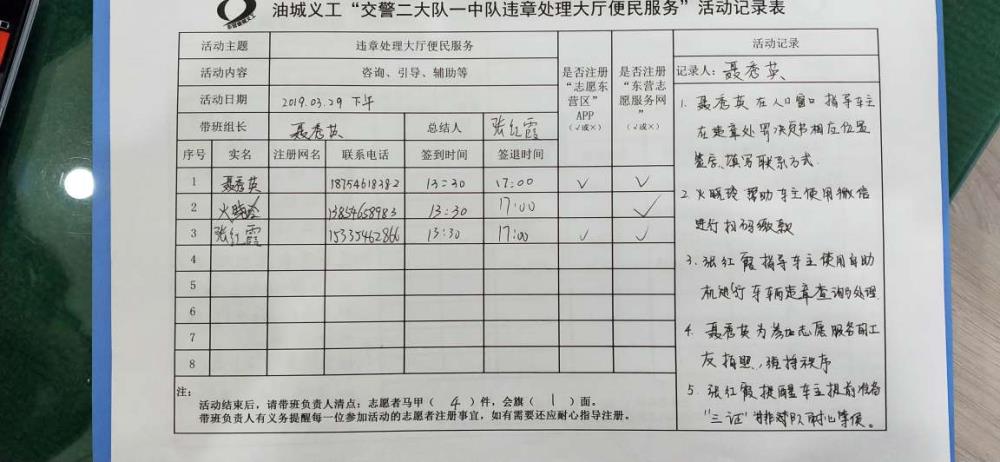 油城义工“交警二大队一中队违章处理大厅便民服务”活动记录表
活动主题 违章处理大厅便民服务
活动内容 咨询、引导、辅助等
活动日期 2019.03.29 下午
带班组长 聂秀英 总结人 张红霞
是否注册“志愿东营区”APP（√或×）
是否注册“东营志愿服务网”（√或×）
序号 实名 注册网名 联系电话 签到时间 签退时间
1 聂秀英 18754618382 13:30 17:00 √ √
2 火晓玲 13854658983 13:30 17:00 √
3 张红霞 15335462866 13:30 17:00 √ √
4
5
6
7
8
注：
活动结束后，请带班负责人清点：志愿者马甲（ 4 ）件，会旗（ 1 ）面。
带班负责人有义务提醒每一位参加活动的志愿者注册事宜，如有需要还应耐心指导注册。
活动记录
记录人：聂秀英
1. 聂秀英在人口窗口指导车主
在违章处罚决定书相应位置
签字、填写联系方式.
2. 火晓玲帮助车主使用微信
进行扫码缴款
3. 张红霞指导车主使用自助
机进行车辆违章查询与处理
4. 聂秀英为参加志愿服务的工
友拍照，维持秩序
5. 张红霞提醒车主提前准备
“三证”排队耐心等候。